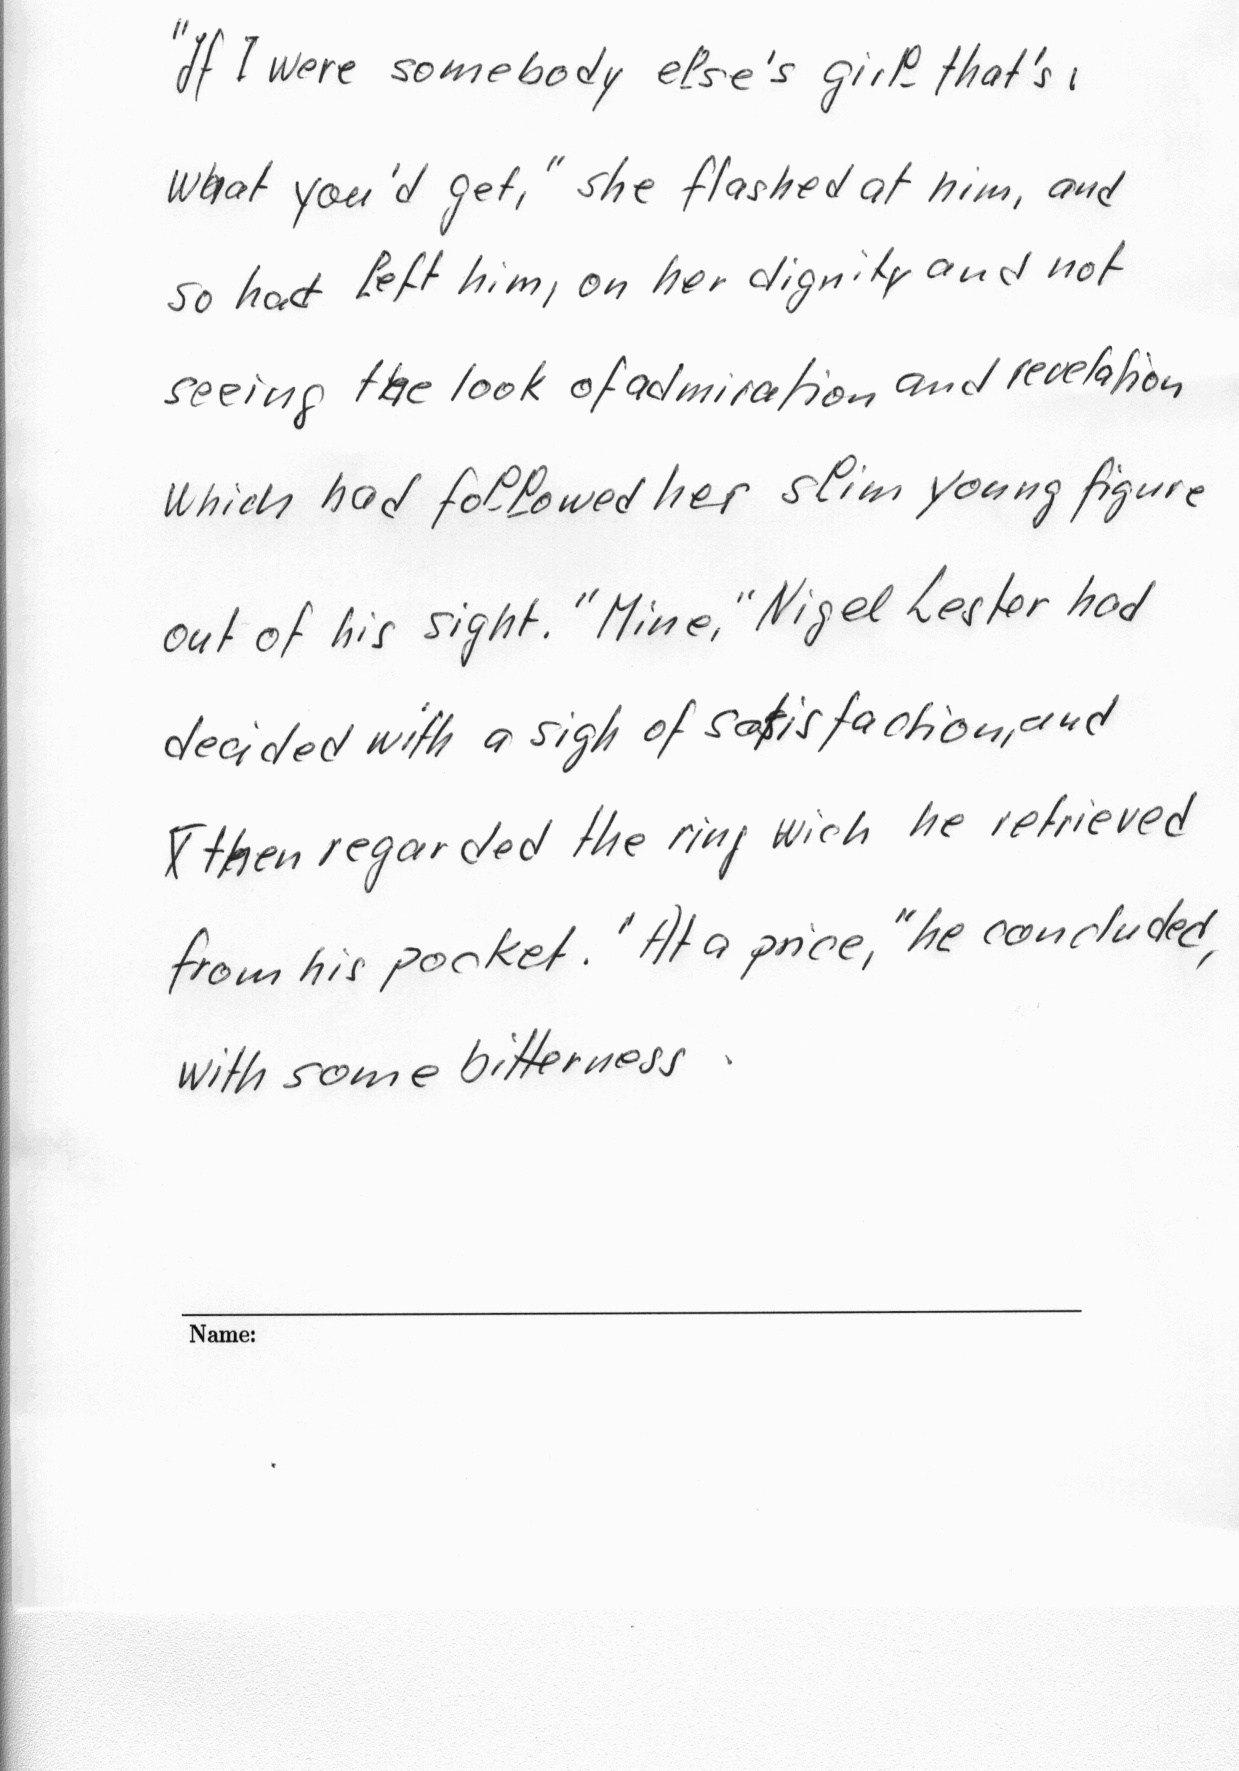 "If I were somebody else's girl that's
what you'd get," she flashed at him, and
so had left him, on her dignity and not
seeing the look of admiration and revelation
which had followed her slim young figure
out of his sight. "Mine," Nigel Lester had
decided with a sigh of satisfaction, and
then regarded the ring wich he retrieved
from his pocket. "At a price," he concluded,
with some bitterness.
Name: